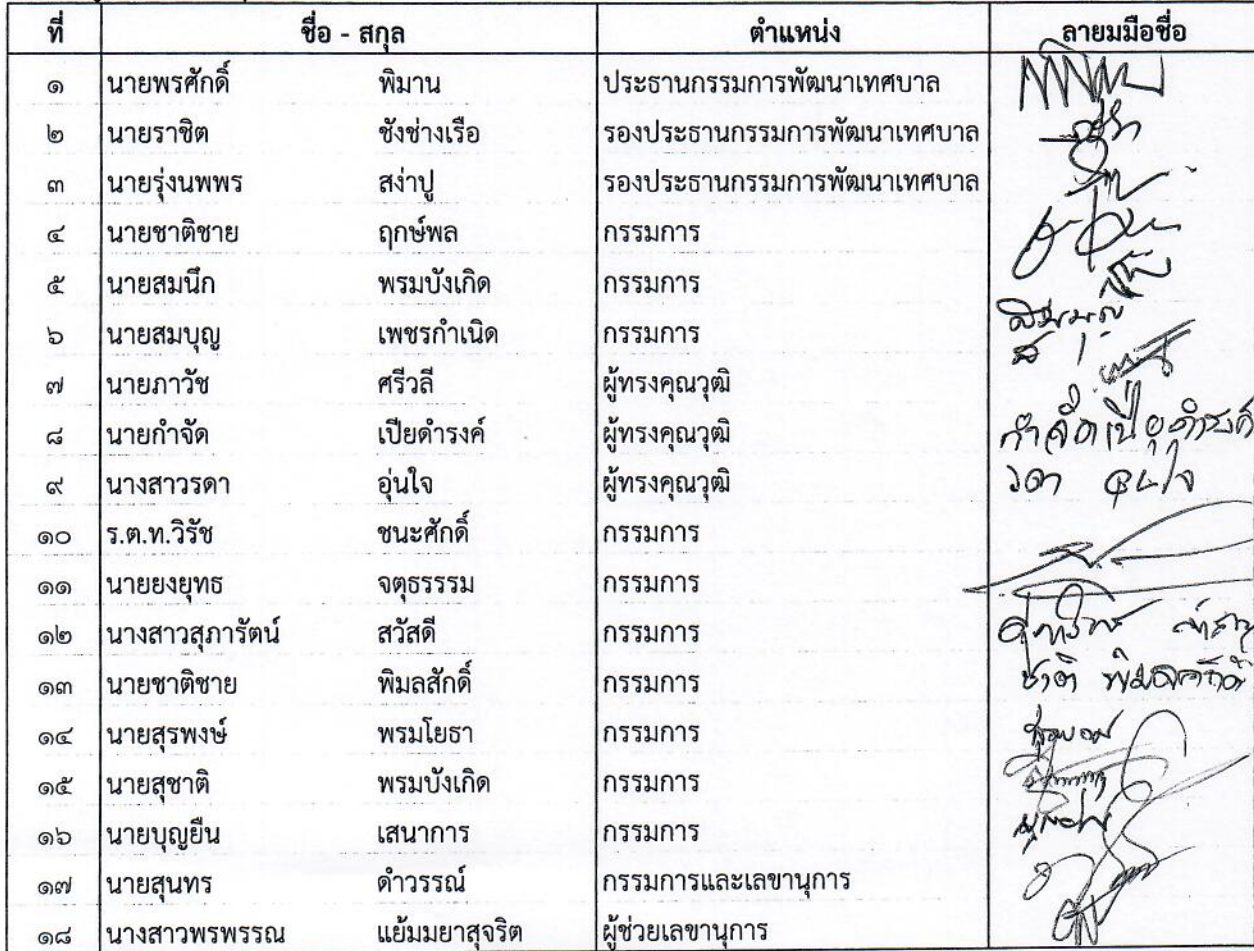 ที่ ชื่อ - สกุล ตำแหน่ง ลายมมือชื่อ
๑ นายพรศักดิ์ พิมาน ประธานกรรมการพัฒนาเทศบาล
๒ นายราชิต ชังช่างเรือ รองประธานกรรมการพัฒนาเทศบาล
๓ นายรุ่งนพพร สง่าปู รองประธานกรรมการพัฒนาเทศบาล
๔ นายชาติชาย ฤกษ์พล กรรมการ
๕ นายสมนึก พรมบังเกิด กรรมการ
๖ นายสมบุญ เพชรกำเนิด กรรมการ สมบุญ
๗ นายภาวัช ศรีวลี ผู้ทรงคุณวุฒิ
๘ นายกำจัด เปียดำรงค์ ผู้ทรงคุณวุฒิ กำจัด เปียดำรงค์
๙ นางสาวรดา อุ่นใจ ผู้ทรงคุณวุฒิ รดา อุ่นใจ
๑๐ ร.ต.ท.วิรัช ชนะศักดิ์ กรรมการ
๑๑ นายยงยุทธ จตุธรรรม กรรมการ
๑๒ นางสาวสุภารัตน์ สวัสดี กรรมการ
๑๓ นายชาติชาย พิมลสักดิ์ กรรมการ
๑๔ นายสุรพงษ์ พรมโยธา กรรมการ
๑๕ นายสุชาติ พรมบังเกิด กรรมการ
๑๖ นายบุญยืน เสนาการ กรรมการ
๑๗ นายสุนทร ดำวรรณ์ กรรมการและเลขานุการ
๑๘ นางสาวพรพรรณ แย้มมยาสุจริต ผู้ช่วยเลขานุการ